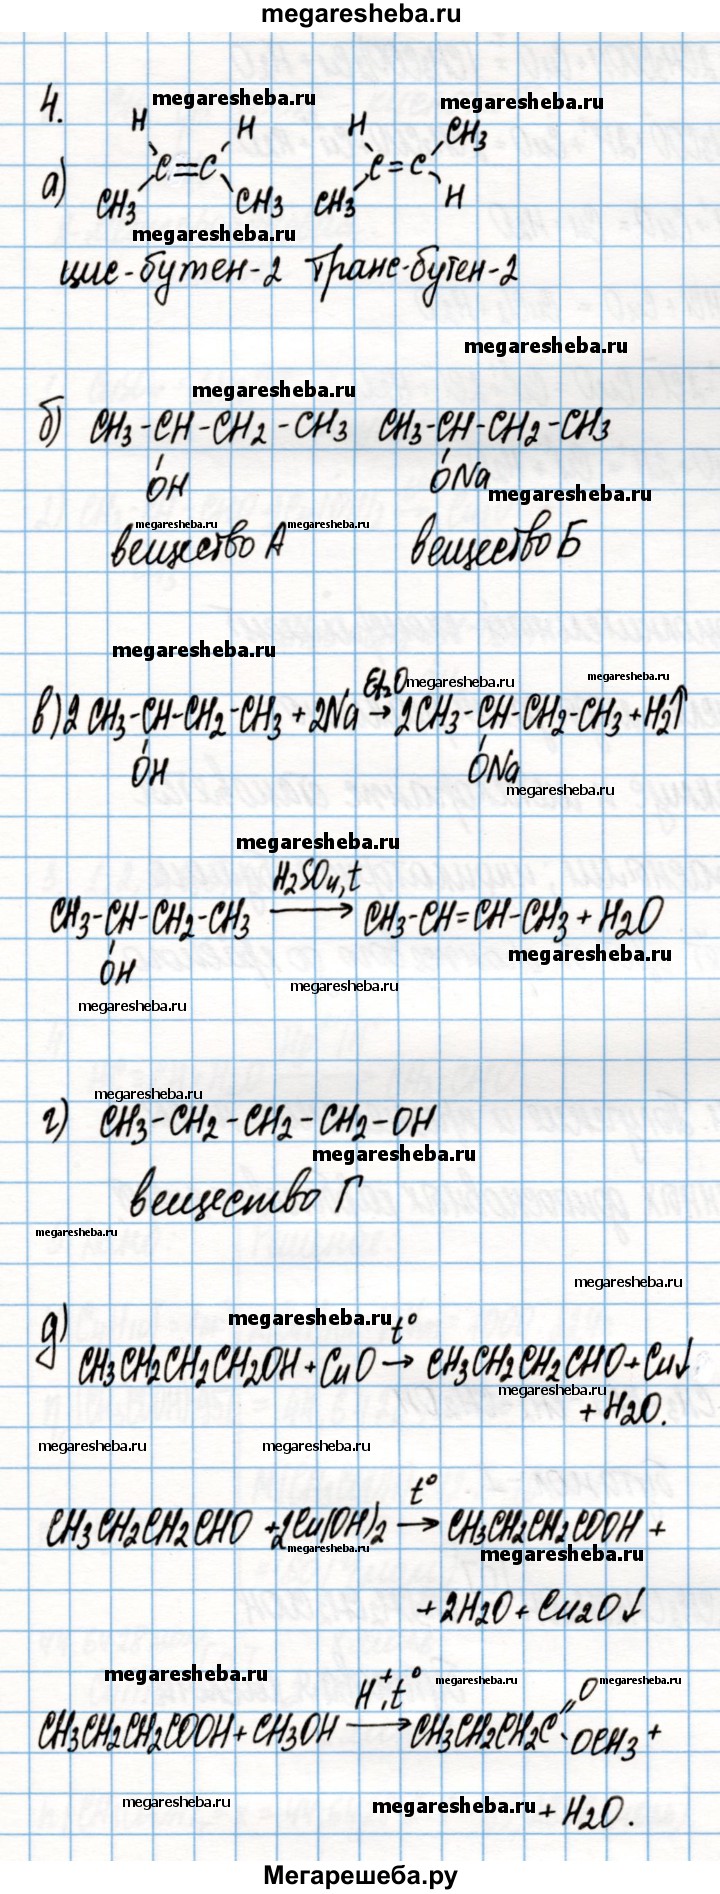 megaresheba.ru
4.
megaresheba.ru
megaresheba.ru
H H H CH3
а) C=C C=C
CH3 CH3 CH3 H
megaresheba.ru
цис-бутен-2 транс-бутен-2
megaresheba.ru
megaresheba.ru
б) CH3-CH-CH2-CH3 CH3-CH-CH2-CH3
OH ONa
megaresheba.ru
megaresheba.ru megaresheba.ru
вещество А вещество Б
megaresheba.ru
megaresheba.ru megaresheba.ru
Et2O
в) 2CH3-CH-CH2-CH3 + 2Na → 2CH3-CH-CH2-CH3 + H2↑
OH ONa
megaresheba.ru
megaresheba.ru
H2SO4, t
CH3-CH-CH2-CH3 → CH3-CH=CH-CH3 + H2O
OH
megaresheba.ru
megaresheba.ru
megaresheba.ru
megaresheba.ru
г) CH3-CH2-CH2-CH2-OH
megaresheba.ru
вещество Г
megaresheba.ru
megaresheba.ru
д)
megaresheba.ru
t°
CH3CH2CH2CH2OH + CuO → CH3CH2CH2CHO + Cu↓
megaresheba.ru
+ H2O.
megaresheba.ru megaresheba.ru
t°
CH3CH2CH2CHO + 2Cu(OH)2 → CH3CH2CH2COOH +
megaresheba.ru
megaresheba.ru
+ 2H2O + Cu2O↓
megaresheba.ru
megaresheba.ru megaresheba.ru
H+, t° O
CH3CH2CH2COOH + CH3OH → CH3CH2CH2C
OCH3 +
megaresheba.ru
megaresheba.ru
+ H2O.
Мегарешеба.ру